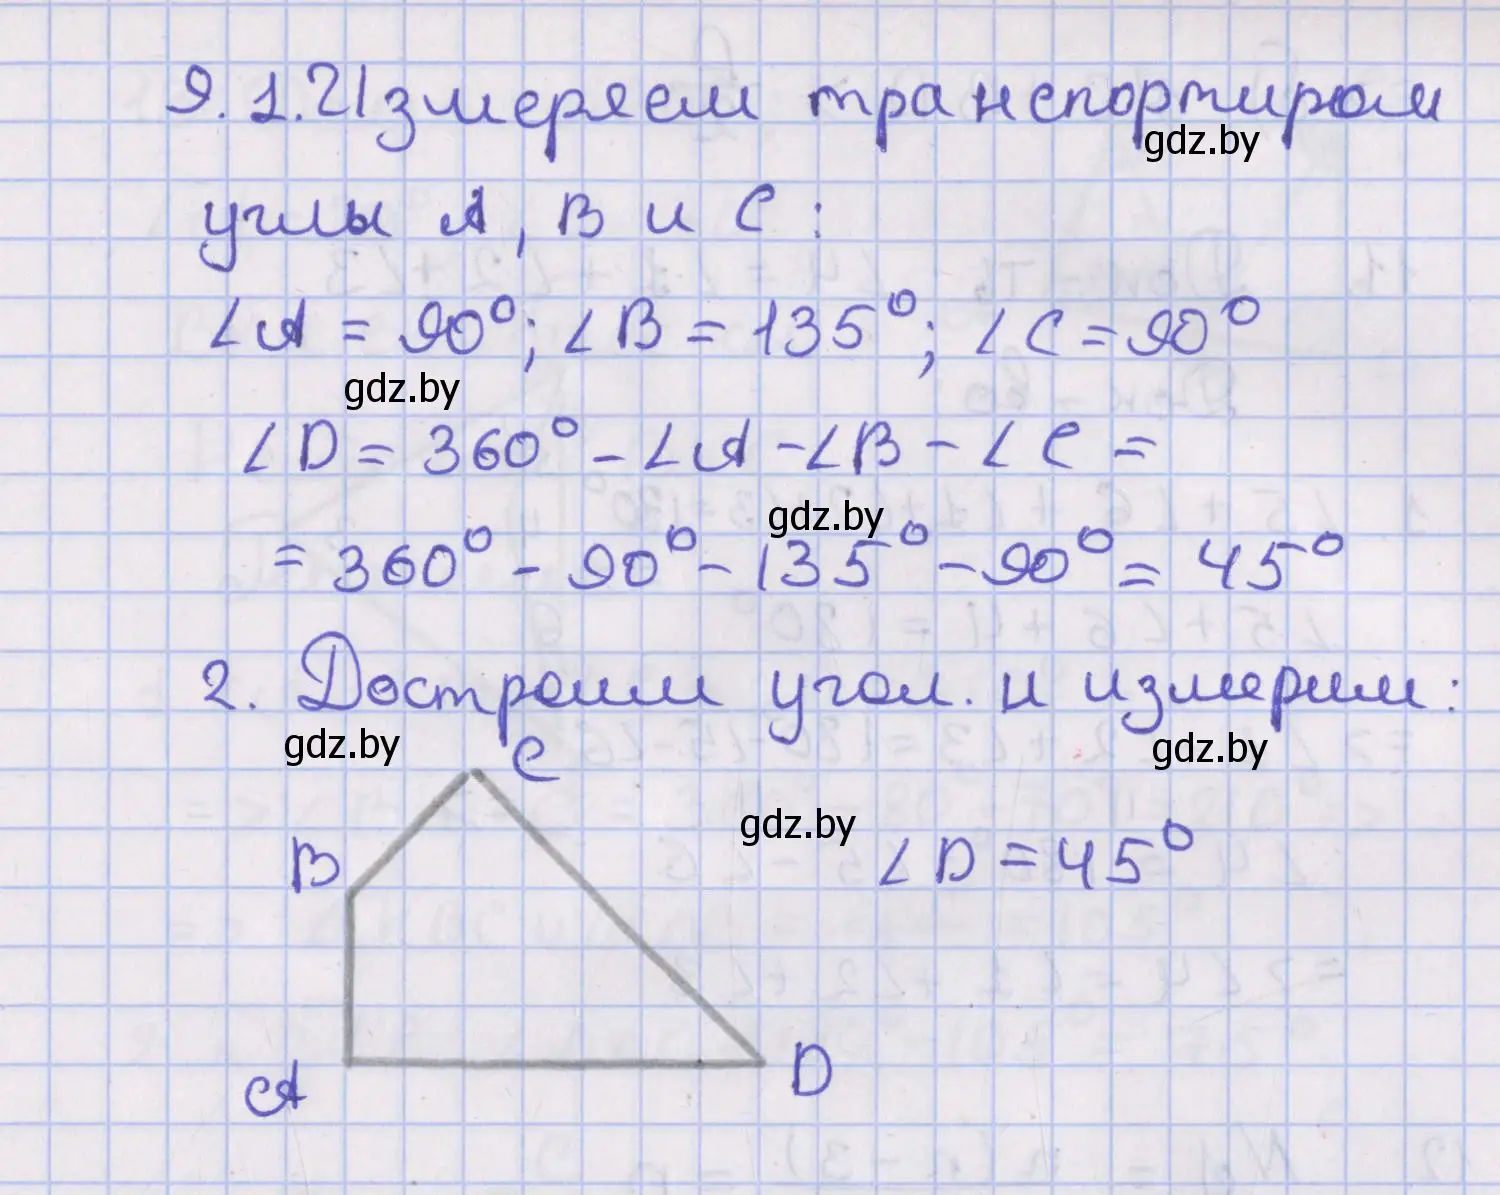 9. 1. Измеряем транспортиром
gdz.by
углы A, B и C:
∠A = 90°; ∠B = 135°; ∠C = 90°
gdz.by
∠D = 360° - ∠A - ∠B - ∠C =
gdz.by
= 360° - 90° - 135° - 90° = 45°
2. Достроим угол. и измерим:
gdz.by
gdz.by
C
gdz.by
B
∠D = 45°
A
D